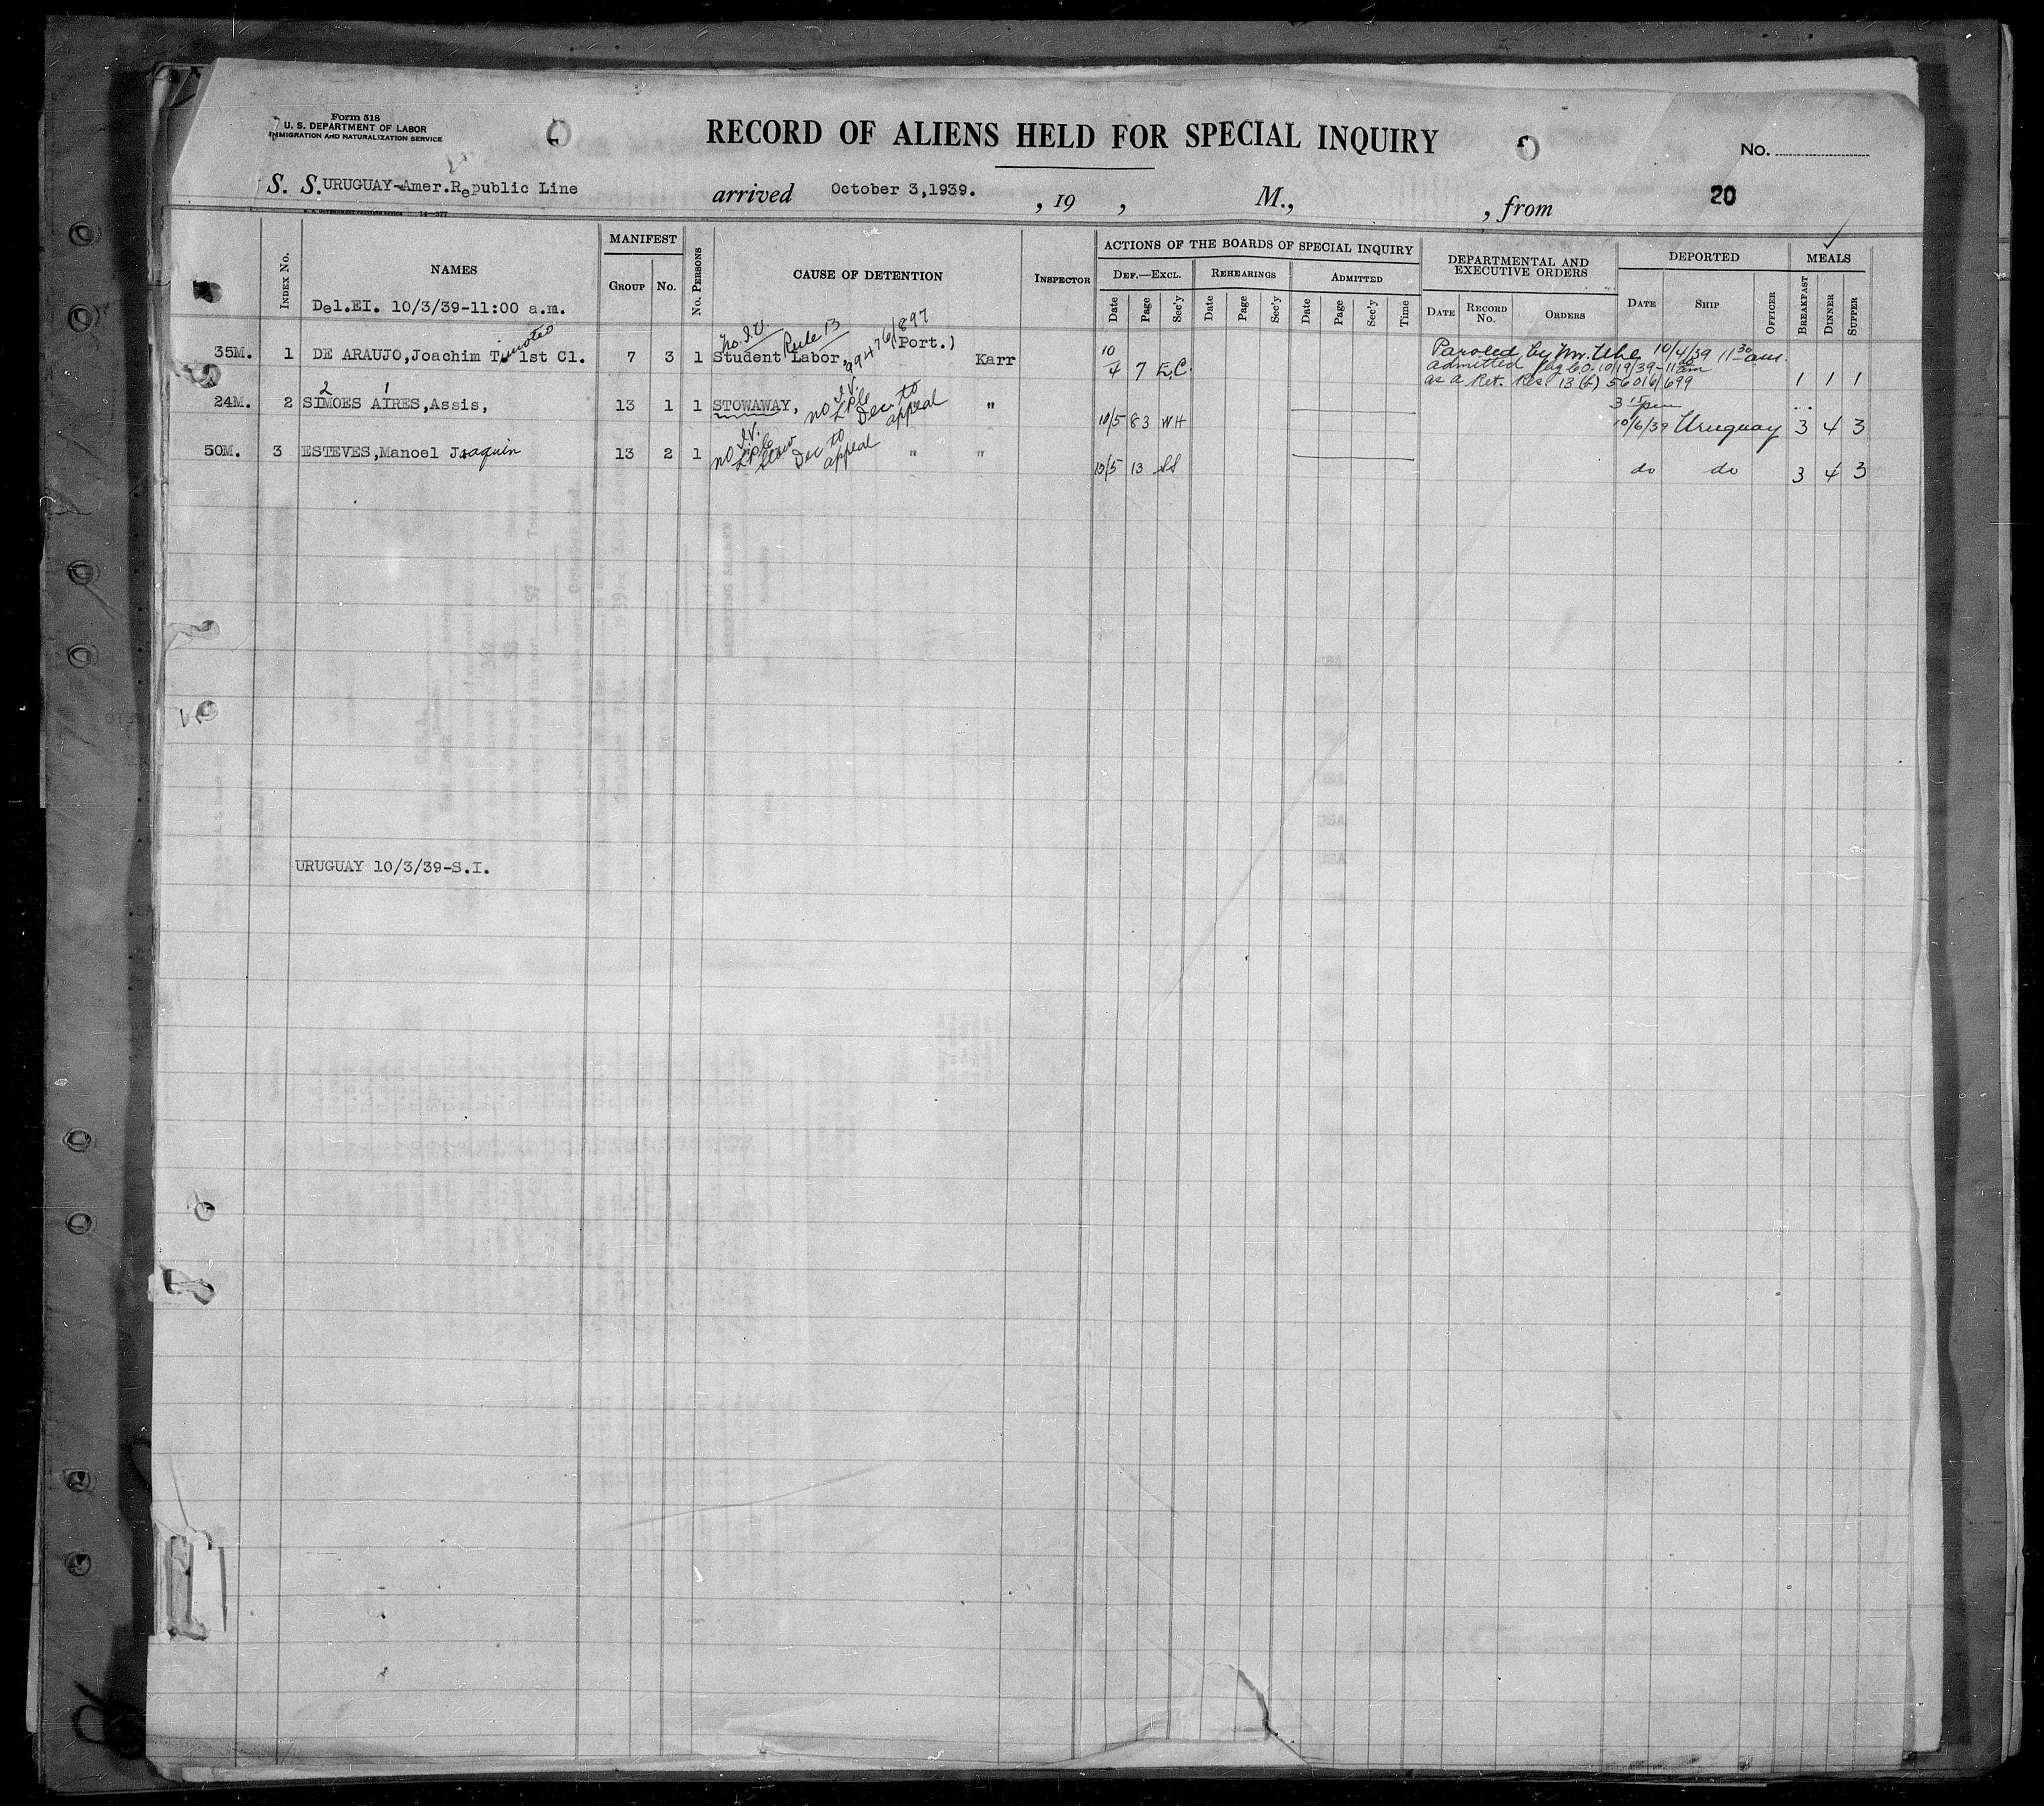 Form 518
U. S. DEPARTMENT OF LABOR
IMMIGRATION AND NATURALIZATION SERVICE
RECORD OF ALIENS HELD FOR SPECIAL INQUIRY
No.
S. S. URUGUAY-Amer.Republic Line arrived October 3,1939. , 19 , M., , from 20
14—377
INDEX No. NAMES MANIFEST GROUP No. No. PERSONS CAUSE OF DETENTION INSPECTOR ACTIONS OF THE BOARDS OF SPECIAL INQUIRY DEPARTMENTAL AND EXECUTIVE ORDERS DEPORTED MEALS
DEF.—EXCL. REHEARINGS ADMITTED
Date Page Sec'y Date Page Sec'y Date Page Sec'y Time DATE RECORD No. ORDERS DATE SHIP OFFICER BREAKFAST DINNER SUPPER
Del.EI. 10/3/39-11:00 a.m.
no. I.V. Rule 13 99476/897
35M. 1 DE ARAUJO,Joachim Timoteo 1st Cl. 7 3 1 Student Labor, (Port.) Karr 10/4 7 E.C. Paroled by Mr. Uhl 10/4/39 11 30 am.
admitted 10/19/39-11 am
as a Ret. Res. 13 (f) 56016/699 1 1 1
24M. 2 SIMOES AIRES,Assis, 2 1 13 1 1 STOWAWAY, no I.V. Dec. to appeal " 10/5 83 WH 3 15 pm 10/6/39 Uruguay 3 4 3
50M. 3 ESTEVES,Manoel Joaquin 13 2 1 no I.V. Stow Dec to appeal " " 10/5 13 SS do do 3 4 3
URUGUAY 10/3/39-S.I.